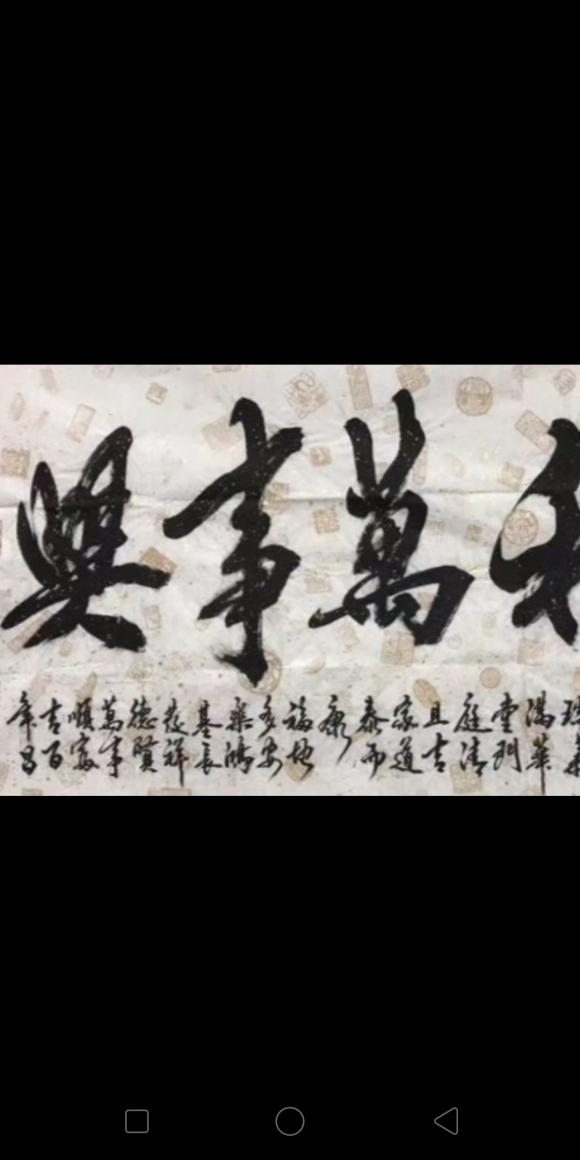 萬事興
滿華
堂門
庭清
且吉
家道
泰而
康
福地
多安
樂鴻
基長
發祥
德賢
萬事
順富
吉百
年昌